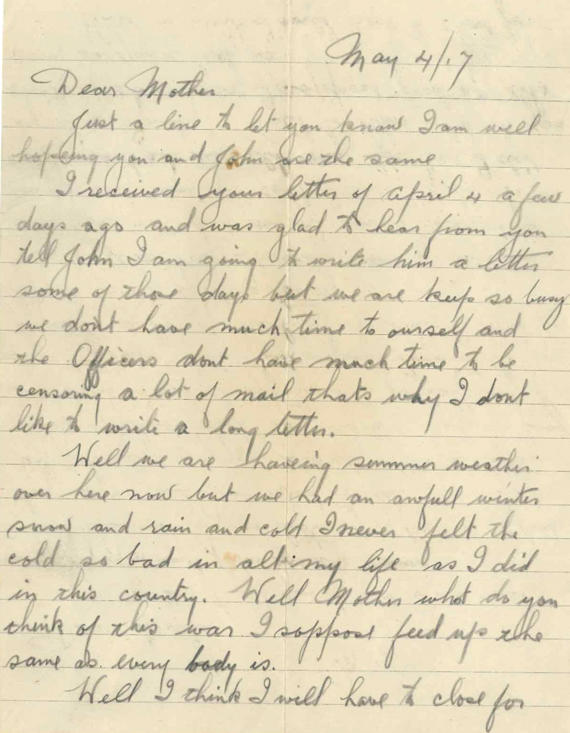 May 4/17
Dear Mother
Just a line to let you know I am well
hopeing you and John are the same
I received your letter of april 4 a few
days ago and was glad to hear from you
tell John I am going to write him a letter
some of those days but we are keep so busy
we dont have much time to ourself and
the Officers dont have much time to be
censoring a lot of mail thats why I dont
like to write a long letter.
Well we are haveing summer weather
over here now but we had an awfull winter
snow and rain and cold I never felt the
cold so bad in all my life as I did
in this country. Well Mother what do you
think of this war I soppose feed up the
same as every body is.
Well I think I will have to close for